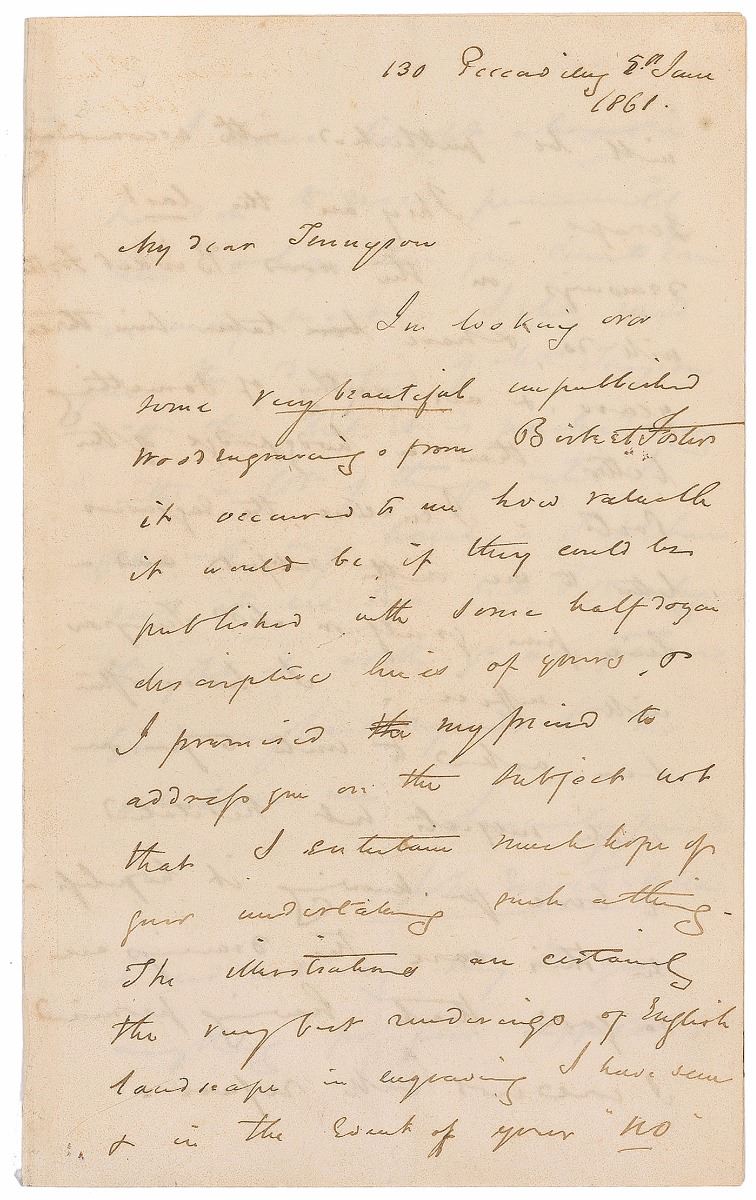 130 Piccadilly 8th June
1861.
My dear Tennyson
In looking over
some very beautiful unpublished
Wood engravings from Birket Fosters
it occurred to me how valuable
it would be if they could be
published with some half dozen
descriptive lines of yours, &
I promised the my friend to
address you on the subject not
that I entertain much hope of
your undertaking such a thing.
The illustrations are certainly
the very best renderings of English
landscape in engraving I have seen
& in the event of your "no"